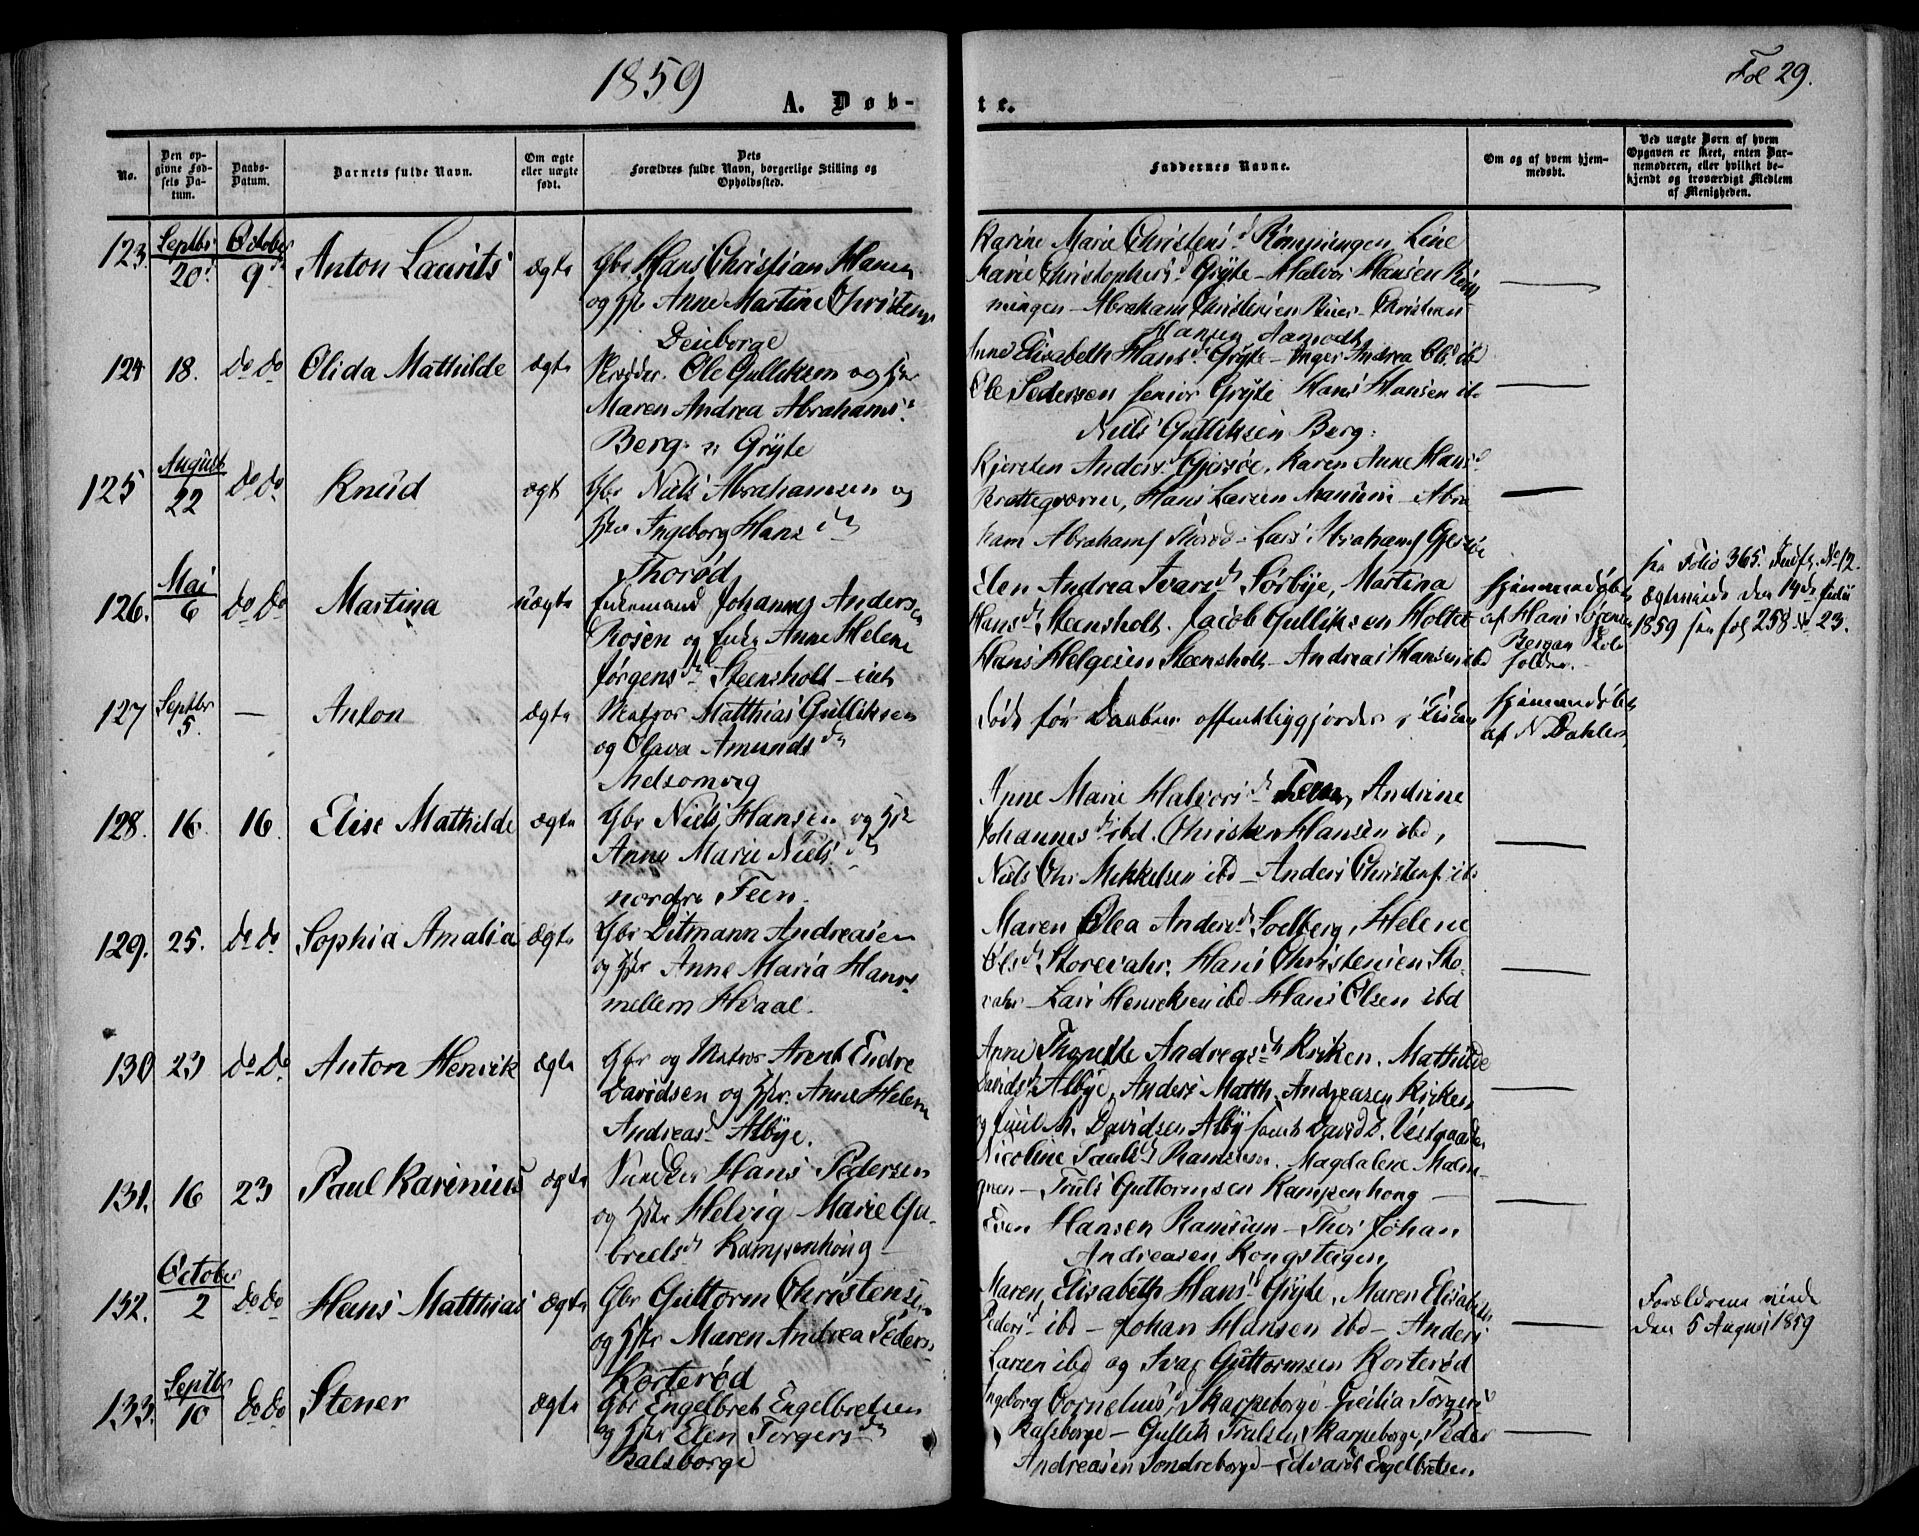 1859
Fol 29.
A. Døb-
te.
No.
Den op-
givne Fød-
sels Da-
tum.
Daabs-
Datum.
Barnets fulde Navn.
Om ægte
eller uægte
født.
Dets
Forældres fulde Navn, borgerlige Stilling og
Opholdssted.
Faddernes Navne.
Om og af hvem hjem-
medøbt.
Ved uægte Børn af hvem
Opgaven er skeet, enten Bar-
nemoderen, eller hvilket be-
kjendt og troværdigt Medlem
af Menigheden.
123. Septbr 20. October 9 Anton Laurits ægte Gbr Hans Christian Hansen
og Hstr Anne Martine Christens
Karine Marie Christens Rømningen, Line
Marie Christophers Gryte - Halvor Hansen Røm
ningen - Abraham Christensen Buer - Christian
Hansen Aamodt
124 18. do do Olida Mathilde ægte Skrædder Ole Gulliksen og Hstr
Maren Andrea Abrahams
Berg Gryte
Anne Elisabeth Hans Gryte - Inger Andrea Ols ib
Ole Pedersen senior Gryte Hans Hansen ibd
Niels Gulliksen Berg.
125 August 22 do do Knud ægte Gbr Niels Abrahamsen og
Hstr Ingeborg Hans
Thorød
Kjersten Anders Gjersøe, Karen Anne Hans
Brættegværne, Hans Larsen - Abra
ham Abrahams - Lars Abrahams
126. Mai 6 do do Martina uægte Johannes Anders
Rosen og Anne Helene
Jørgens Steensholt
Elen Andrea Ivars Sørbye, Martina
Hans Steensholt. Jacob Gulliksen Holtet
Hans Helgesen Steensholt - Andreas Hansen ibd
Hjemmedøbt
af Hans Sørensen
Bergan
fra Folio 365.
1859 fol 258 No 23.
127 Septbr 5. — Anton ægte Matros Matthias Gulliksen
og Olava Amunds
Melsomvig
Døde før Daaben offentliggjordes i Kirken
Hjemmedøbt
af N Dahler
128. 16. 16. Elise Mathilde ægte Gbr Niels Hansen og Hstr
Anne Marie Niels
nordre Feen.
Anne Marie Halvors Feen, Andrine
Johannes ibd. Christen Hansen ibd,
Niels Chr Mikkelsen ibd - Anders Christens ib
129. 25. do do Sophia Amalia ægte Gbr Ditmann Andreasen
og Hstr Anne Maria Hans
mellem Hvaal.
Maren Olea Anders Solberg, Helene
Ols Storevahr. Hans Christensen Sto-
revahr - Lars Henriksen ibd - Hans Olsen ibd
130 23 do do Anton Henrik ægte Gbr og Matros Arent Endre
Davidsen og Hstr. Anne Helene
Andreas Albye.
Anne Thonette Andreas Kriken. Mathilde
Davids Albye, Anders Matth. Andreasen Kriken
og M. Davidsen Alby samt David E. Vestgaarden
131. 16 23 Paul Karinius ægte Hans Pedersen
og Hstr Helvig Marie Ga-
breels Kampenhoug -
Nicoline Pauls Ramsum. Magdalene Malm-
gren - Truls Guttormsen Kampenhoug -
Even Hansen Ramsum - Thor Johan
Andreasen Kongsteigen
132. October 2 do do Hans Matthias ægte Gbr Guttorm Christensen
og Hstr Maren Andrea Peders
Korterød
Maren Elisabeth Hans Gryte, Maren Elisabeth
Peders ibd - Johan Hansen ibd - Anders
Larsen ibd og Ivar Guttormsen Korterød
Forældrene viede
den 5 August 1859
133. Septbr 10 do do Stener ægte Gbr Engelbret Engelbretsen
og Hstr Elen Torgers
Balsborge
Ingeborg Cornelius Skarpeborge - Cecilia Torgers
Balsborge - Gullik Trulsen Skarpeborge, Peder
Andreasen Søndreborge - Edvard Engelbretsen